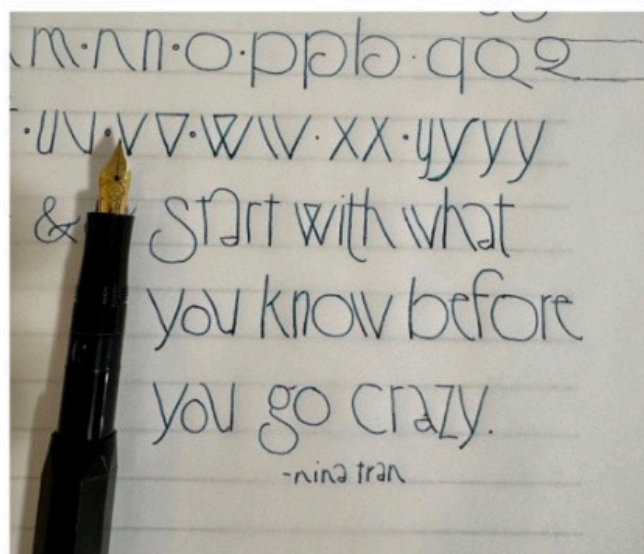 m·nn·o·ppb·qQ2
·uV·vv·ww·xx·yyyy
& start with what
you know before
you go crazy.
-nina tran